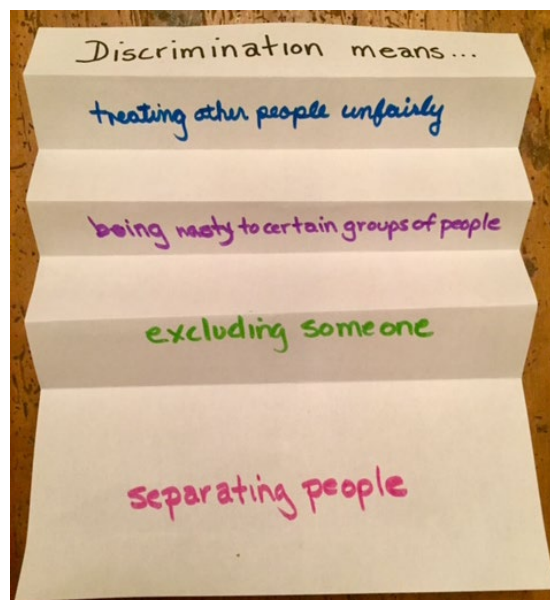 Discrimination means...
treating other people unfairly
being nasty to certain groups of people
excluding someone
separating people